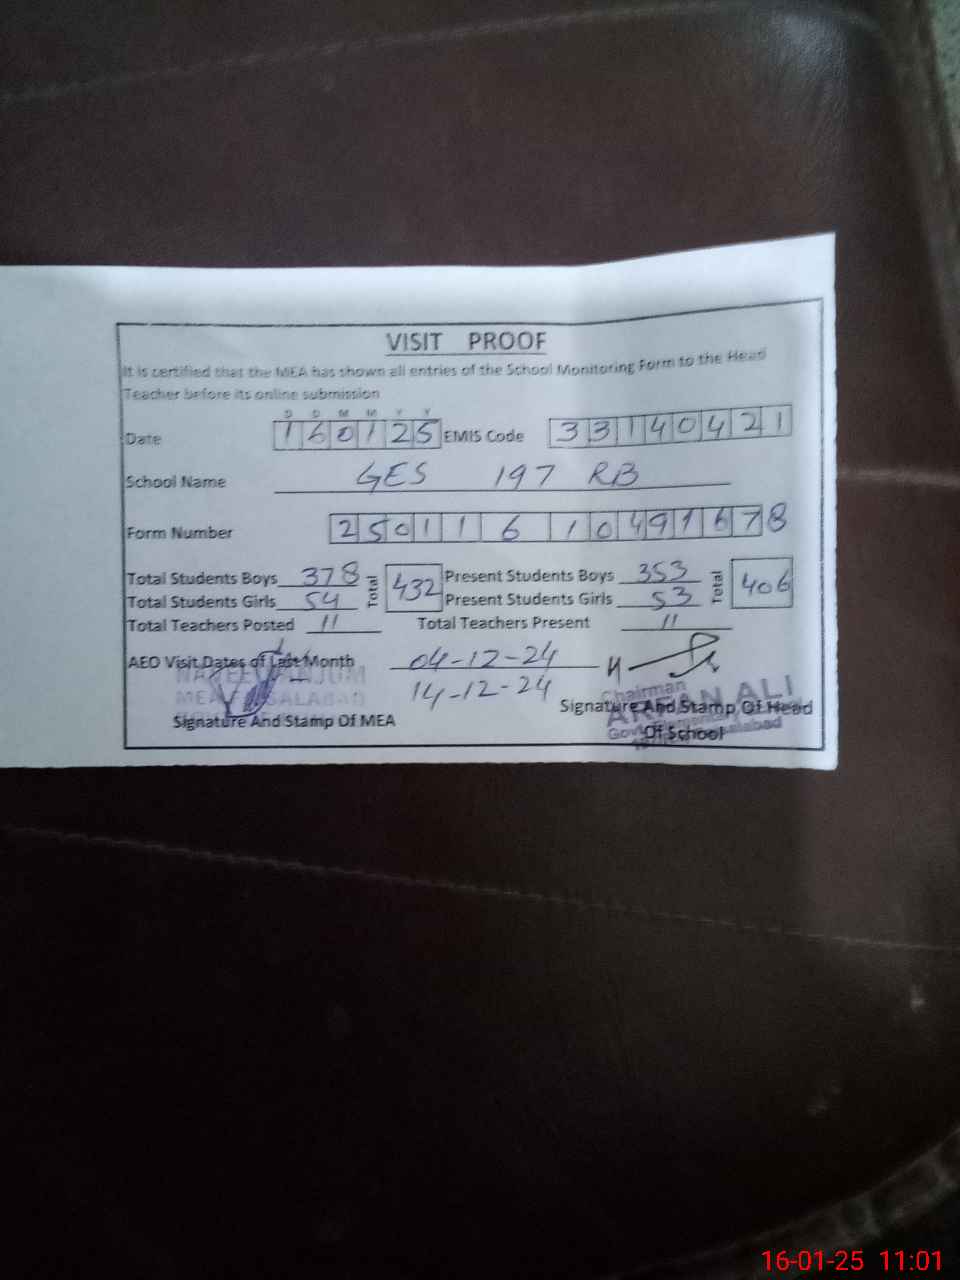 VISIT PROOF
It is certified that the MEA has shown all entries of the School Monitoring Form to the Head
Teacher before its online submission
D D M M Y Y
Date 160125 EMIS Code 33140421
School Name GES 197 RB
Form Number 25011610491678
Total Students Boys 378 Total 432 Present Students Boys 353 Total 406
Total Students Girls 54 Present Students Girls 53
Total Teachers Posted 11 Total Teachers Present 11
AEO Visit Dates of Last Month 04-12-24
14-12-24
NAVEED ANJUM
MEA FAISALABAD
Signature And Stamp Of MEA
Chairman
ARFAN ALI
Signature And Stamp Of Head
Of School
16-01-25 11:01